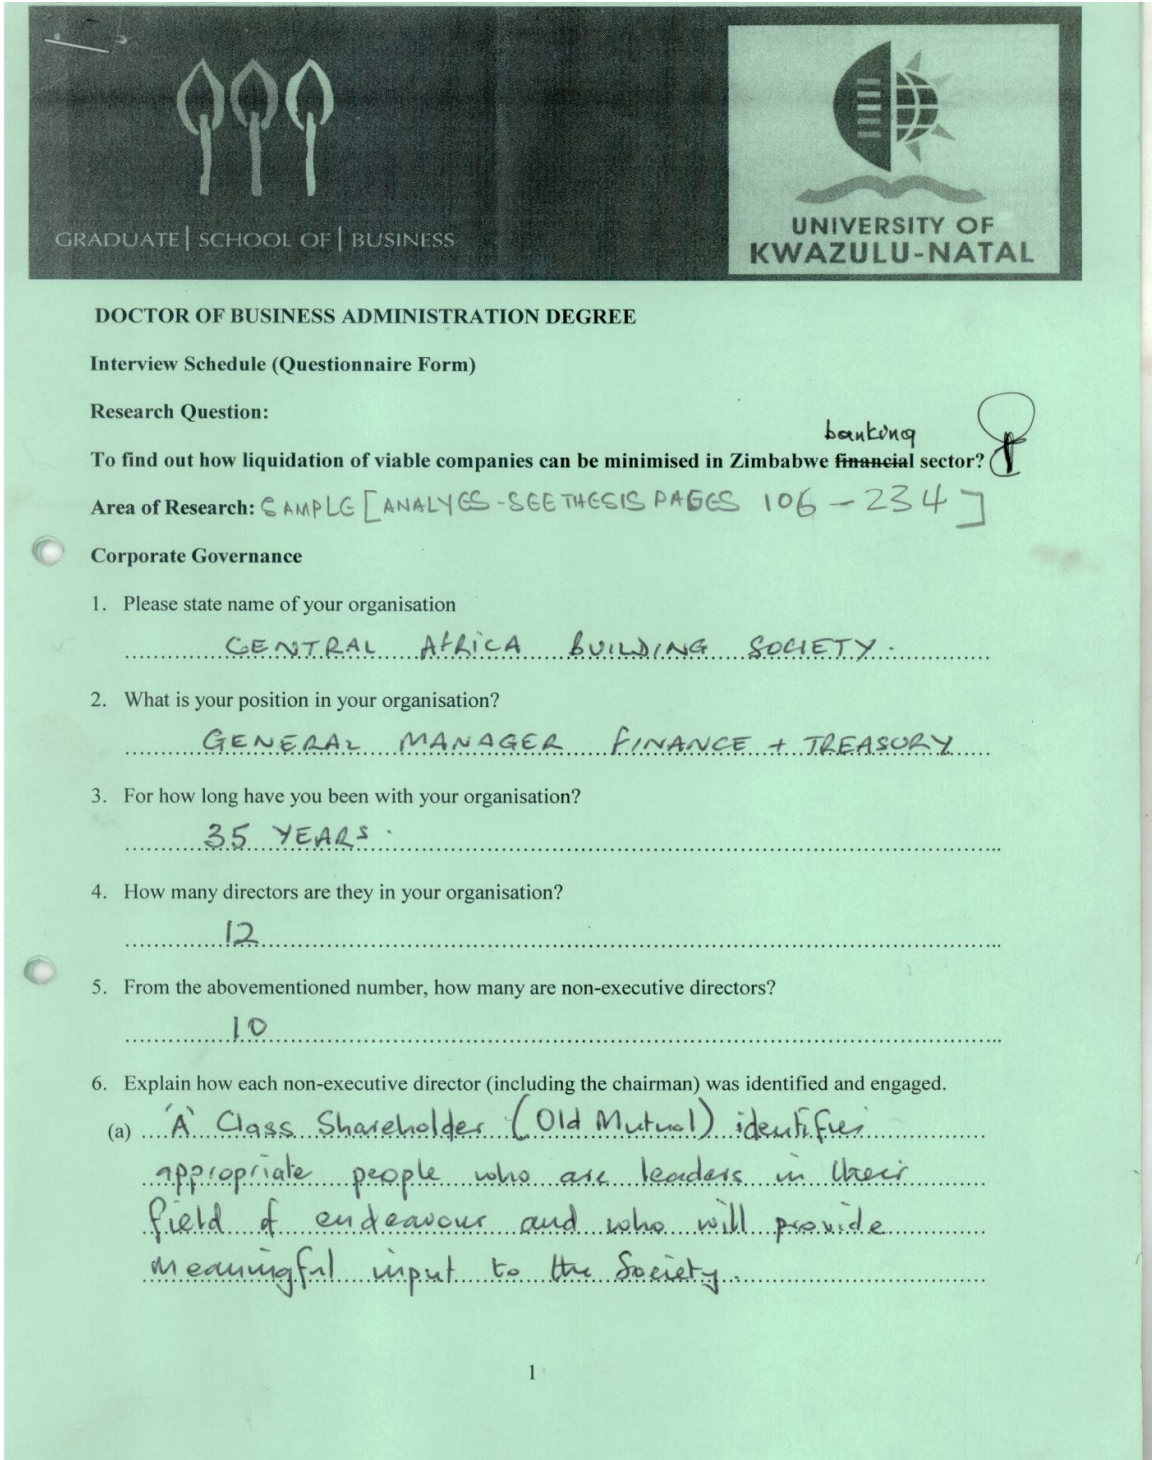 GRADUATE | SCHOOL OF | BUSINESS
UNIVERSITY OF
KWAZULU-NATAL
DOCTOR OF BUSINESS ADMINISTRATION DEGREE
Interview Schedule (Questionnaire Form)
Research Question:
banking
To find out how liquidation of viable companies can be minimised in Zimbabwe financial sector?
Area of Research: SAMPLE [ANALYES - SEE THESIS PAGES 106 - 234]
Corporate Governance
1. Please state name of your organisation
CENTRAL AFRICA BUILDING SOCIETY.
2. What is your position in your organisation?
GENERAL MANAGER FINANCE + TREASURY
3. For how long have you been with your organisation?
35 YEARS.
4. How many directors are they in your organisation?
12
5. From the abovementioned number, how many are non-executive directors?
10
6. Explain how each non-executive director (including the chairman) was identified and engaged.
(a) 'A' Class Shareholder (Old Mutual) identifies
appropriate people who are leaders in their
field of endeavour and who will provide
meaningful input to the Society.
1